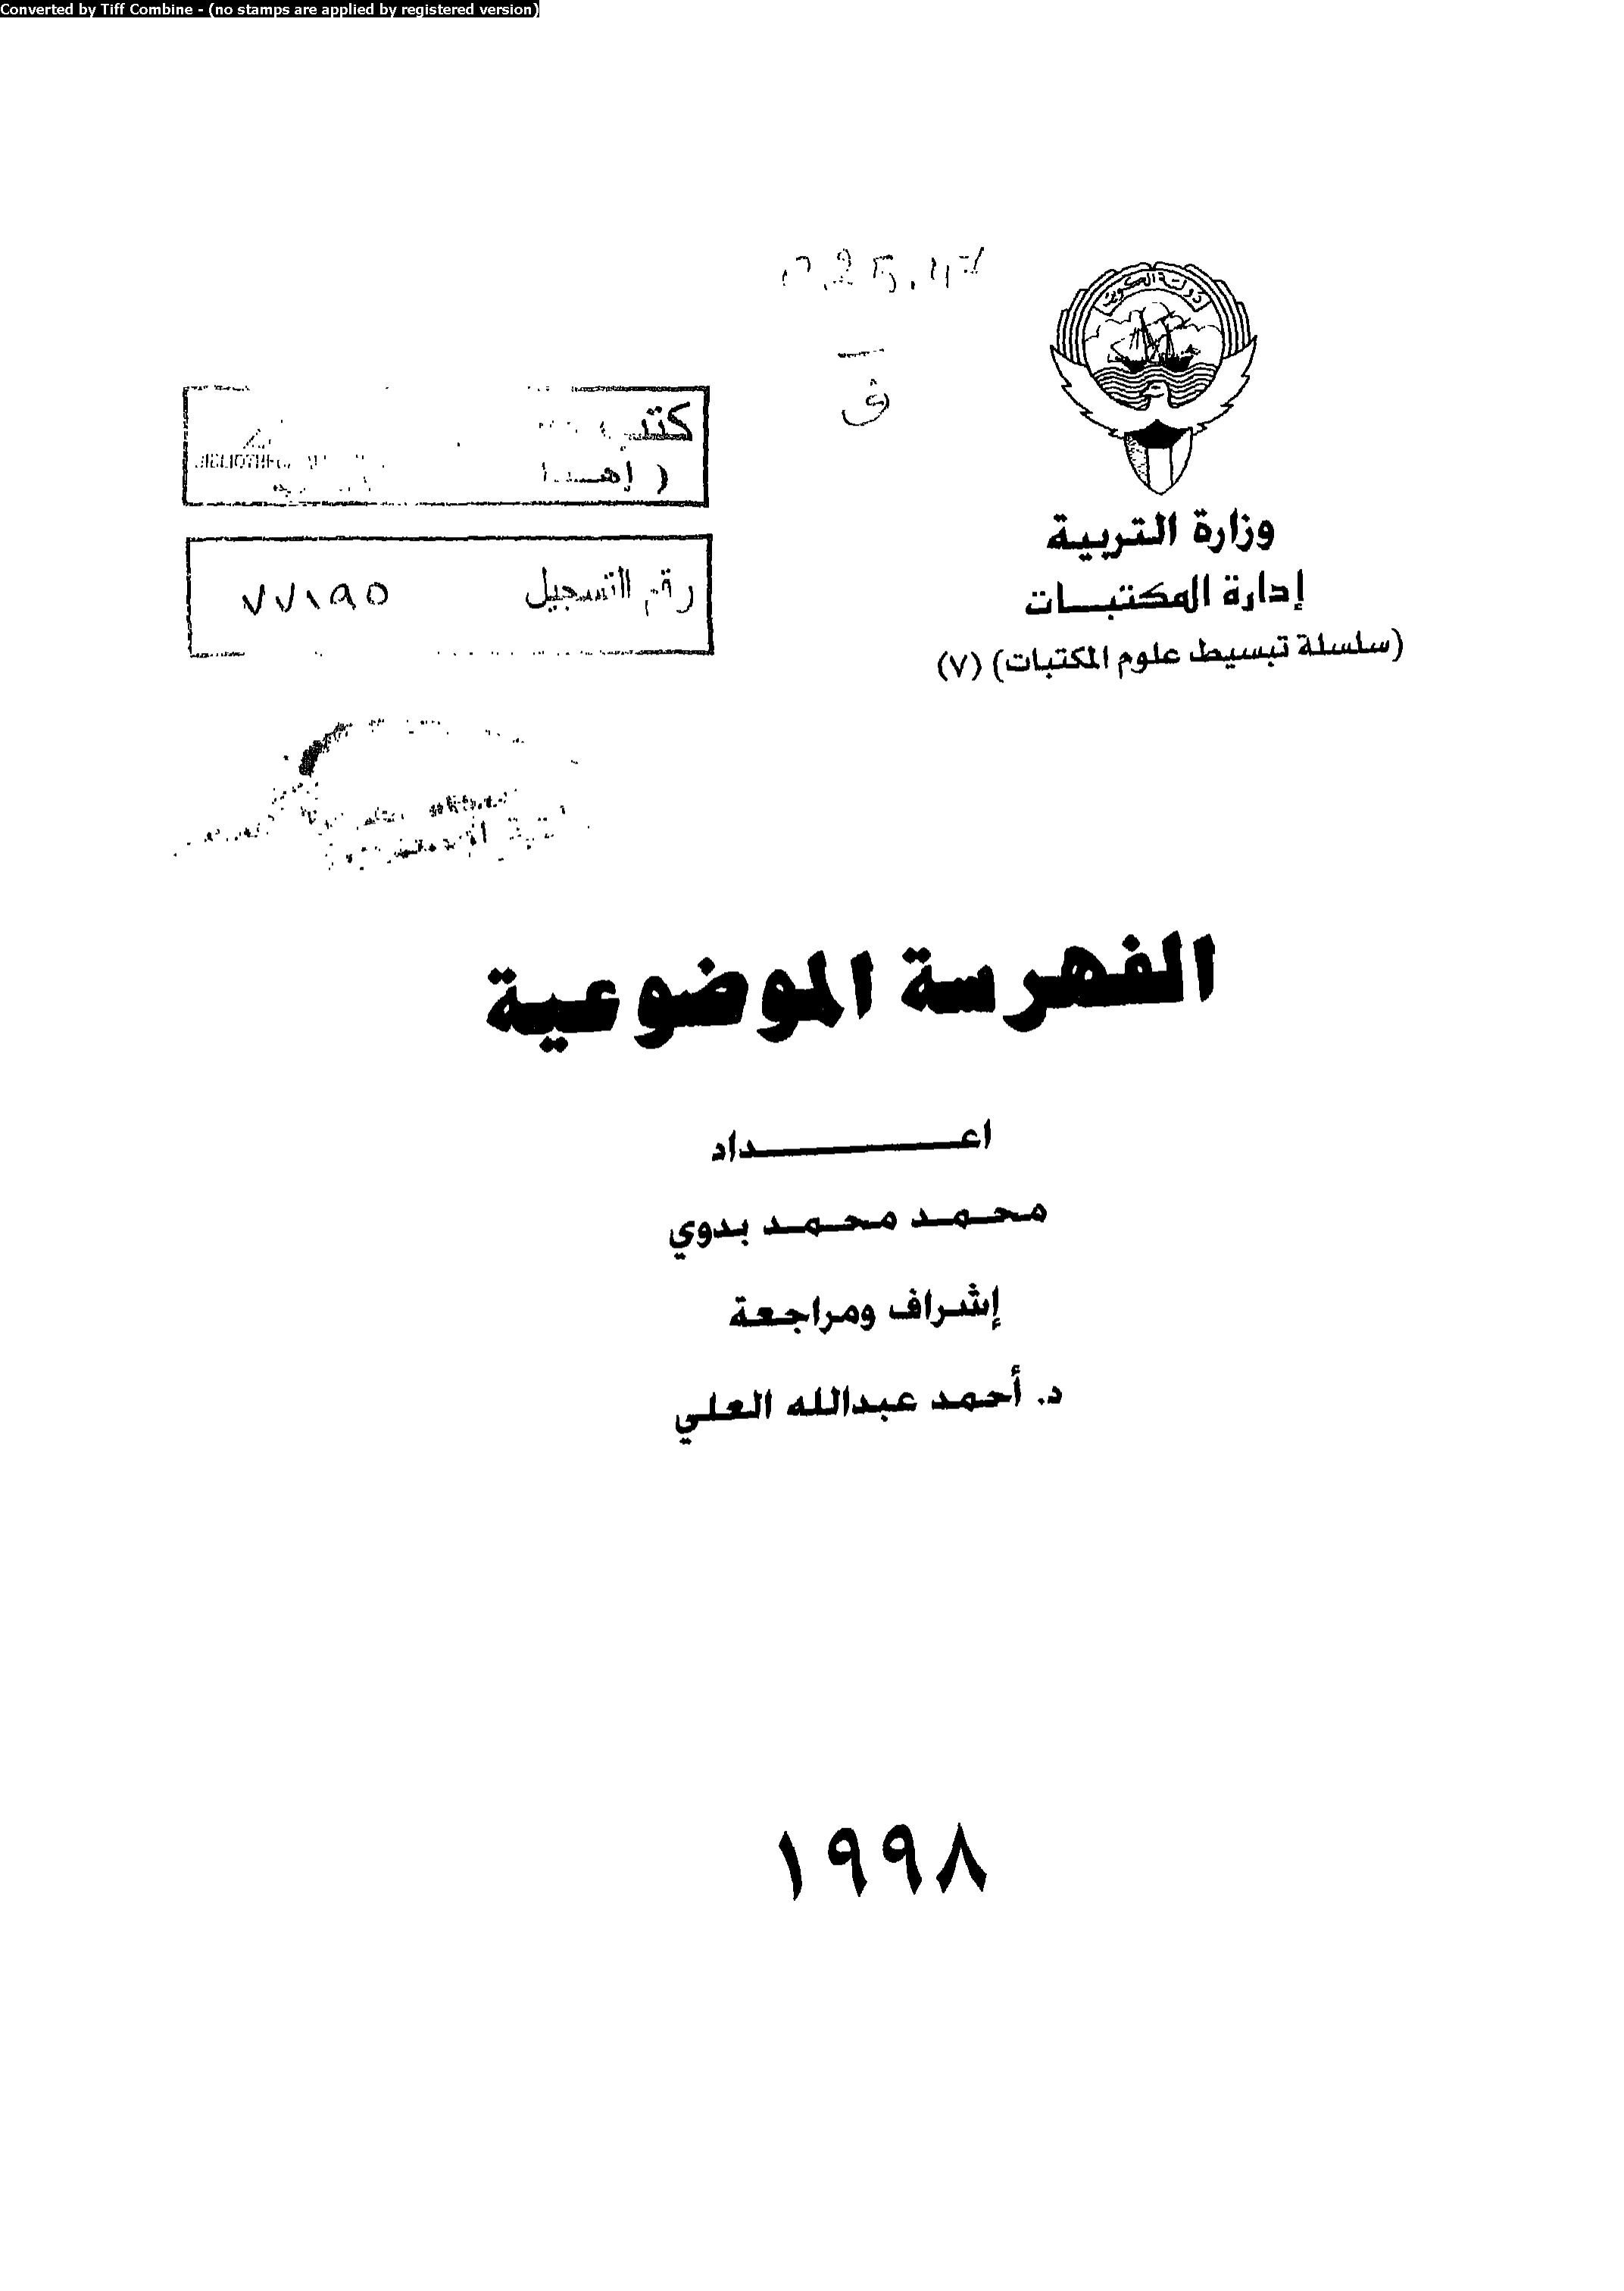 Converted by Tiff Combine - (no stamps are applied by registered version)
025.47
ف
دولة الكويت
وزارة التربية
إدارة المكتبات
(سلسلة تبسيط علوم المكتبات) (٧)
( إهداء
رقم التسجيل ٧٧١٩٥
الفهرسة الموضوعية
اعداد
محمد محمد بدوي
إشراف ومراجعة
د. أحمد عبدالله العلي
١٩٩٨